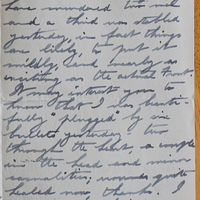 have murdered two men
and a third was stabbed
yesterday, in fact things
are likely, to put it
mildly, and nearly as
exciting as the actual Front.
It may interest you to
know that I was beauti-
fully "plugged" by six
bullets yesterday two
through the heart, a couple
in the head and minor
casualties; wounds quite
healed now, thanks. I